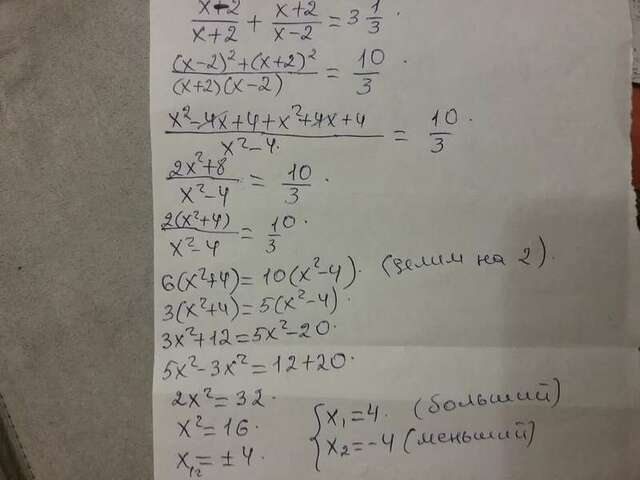 x-2/x+2 + x+2/x-2 = 3 1/3.
(x-2)²+(x+2)²/(x+2)(x-2) = 10/3.
x²-4x+4+x²+4x+4/x²-4. = 10/3.
2x²+8/x²-4 = 10/3.
2(x²+4)/x²-4 = 10/3.
6(x²+4)=10(x²-4). (делим на 2).
3(x²+4)=5(x²-4).
3x²+12=5x²-20.
5x²-3x²=12+20.
2x²=32.
x²=16. { x₁=4. (больший)
x₁₂=±4. x₂=-4 (меньший)